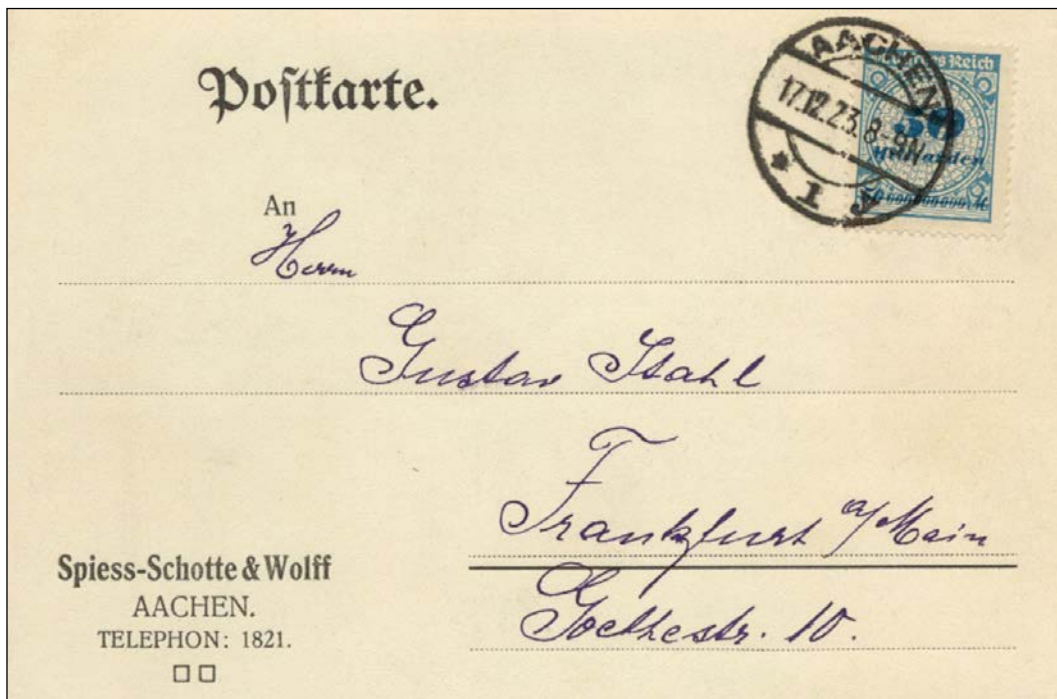 Postkarte.
AACHEN
17.12.23. 8-9N
* 1
Reich
50
Milliarden
An
Herrn
Gustav Stahl
Frankfurt a/Main
Goethestr. 10.
Spiess-Schotte & Wolff
AACHEN.
TELEPHON: 1821.